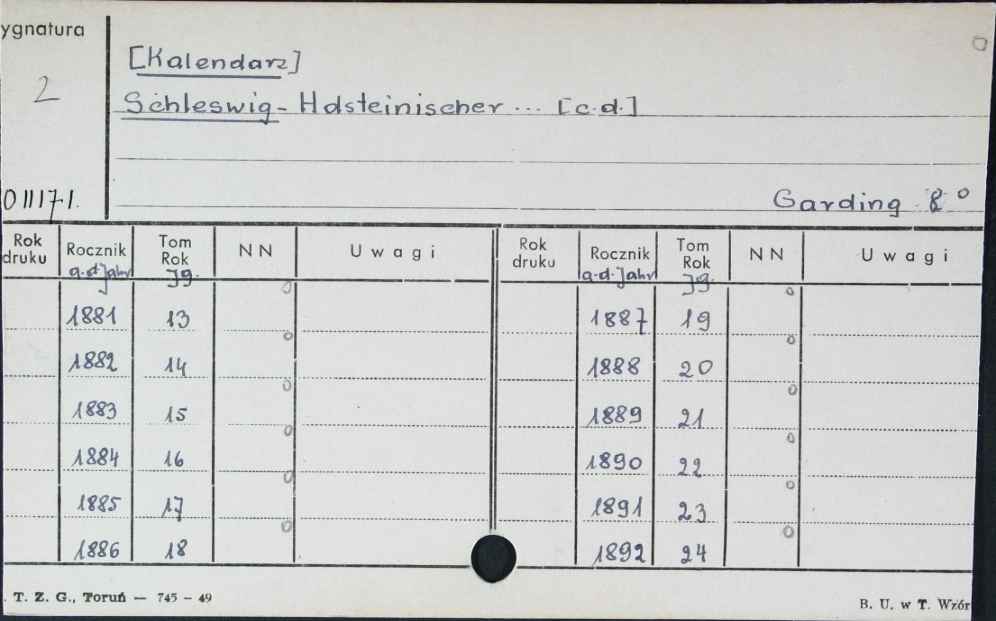 ygnatura
2
[Kalendarz]
Schleswig-Holsteinischer ... [c.d.]
011171.
Garding 8°
Rok druku Rocznik Tom Rok NN Uwagi Rok druku Rocznik Tom Rok NN Uwagi
a.d.Jahr Jg. a.d.Jahr Jg.
1881 13 1887 19
1882 14 1888 20
1883 15 1889 21
1884 16 1890 22
1885 17 1891 23
1886 18 1892 24
. T. Z. G., Toruń — 745 – 49
B. U. w T. Wzór